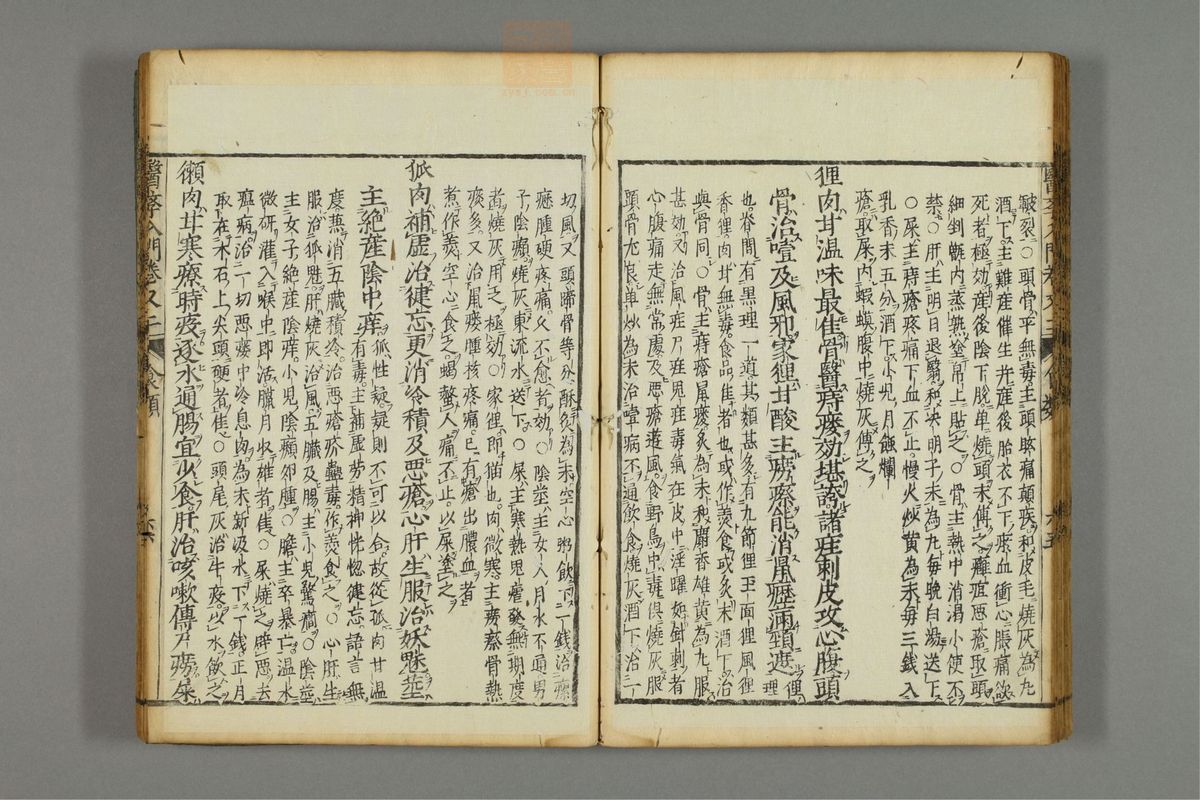 皴裂○頭骨平無毒主頭眩痛顛疾和皮毛燒灰為丸
酒下主難產催生并產後胎衣不下瘀血衝心脹痛欲
死者極効產後陰下脫單燒頭末傅之癰疽惡瘡取頭
細剉瓶内蒸熟塗帛上貼之○骨主熱中消渴小便不
禁○肝主明目退翳和决明子末為丸每晚白湯送下
○屎主痔瘡疼痛下血不止慢火炒黄為末每三錢入
乳香末五分酒下小兒月蝕爛
瘡取屎内蝦蟆腹中燒灰傅之
狸肉甘溫味最佳骨醫痔瘻効堪誇諸疰刺皮攻心腹頭
骨治噎及風邪家狸甘酸主勞瘵能消鼠瘰滿頸遮
狸
理
也脊間有黒理一道其類甚多有九節狸玉面狸風狸
香狸肉甘無毒食品佳者也或作羹食或炙末酒下治
與骨同○骨主痔瘡鼠瘻炙為末和麝香雄黄為丸服
甚効又治風疰尸疰鬼疰毒氣在皮中淫躍如針刺者
心腹痛走無常處及惡瘡遊風食野鳥中毒俱燒灰服
頭骨尤良單炒為末治噎病不通飲食燒灰酒下治一
切風又頭蹄骨等分酥炙為末空心粥飲下二錢治瘰
癧腫硬疼痛久不愈者効○陰莖主女人月水不通男
子陰㿗燒灰東流水送下○屎主寒熱鬼瘧發無期度
者燒灰用之極効○家狸即猫也肉微寒主勞瘵骨熱
痰多又治風瘻腫核疼痛已有瘡出膿血者
煮作羹空心食之蝎螫人痛不止以屎塗之
狐肉補虛治健忘更消冷積及惡瘡心肝生服治妖魅莖
主絶產陰中痒
狐性疑疑則不可以合故從孤肉甘溫
有毒主補虛勞精神恍惚健忘語言無
度兼消五臟積冷治惡瘡疥蠱毒作羹食之○心肝生
服治狐魅肝燒灰治風五臟及腸主小兒驚癇○陰莖
主女子絶產陰痒小兒陰㿗卵腫○膽主卒暴亡溫水
微研灌入喉中即活臘月收雄者佳○屎燒之辟惡去
瘟病治一切惡瘻中冷息肉為末新汲水下一錢正月
取在木石上尖頭硬者佳○頭尾灰治牛疫以水飲之
獺肉甘寒療時疫逐水通腸宜少食肝治咳嗽傳尸勞屎